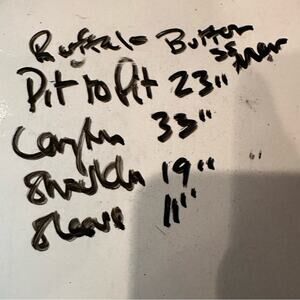 Buffalo Button
Pit to Pit 23"
Length 33"
Shoulder 19"
Sleeve 11"